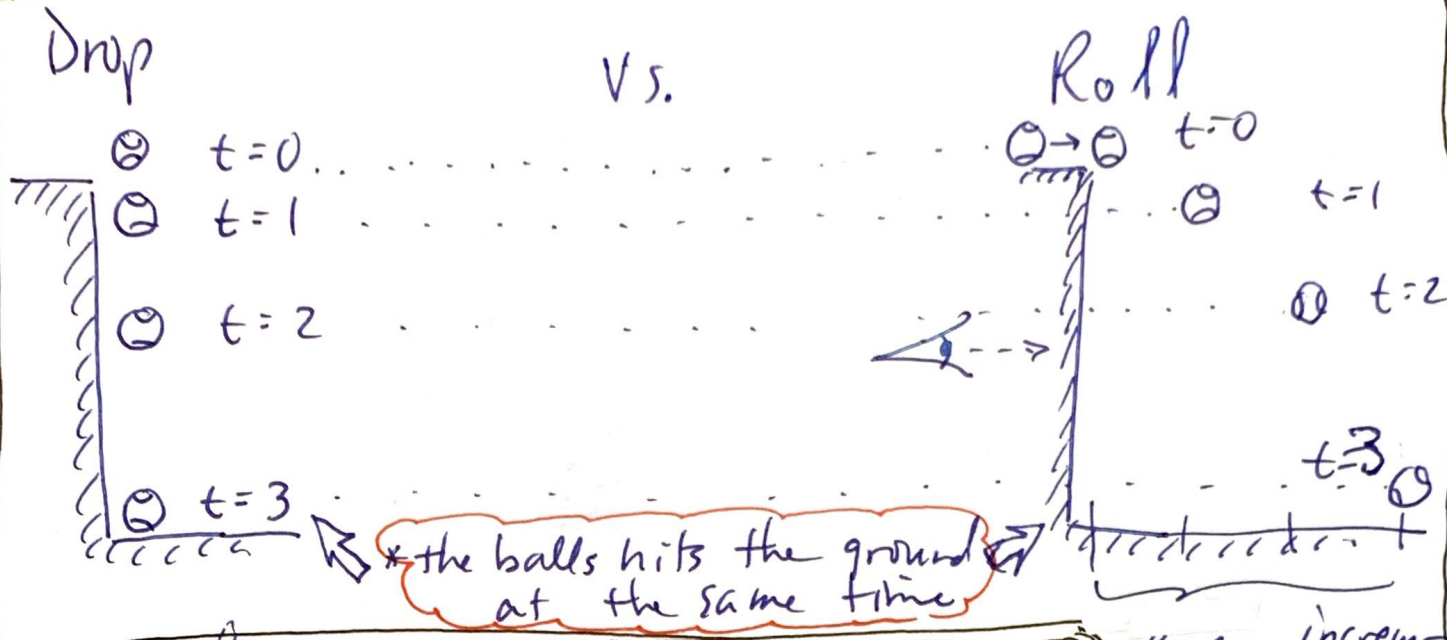 Drop Vs. Roll
t=0
t=0
t=1
t=1
t=2
t=2
t=3
t=3
*the balls hits the ground
at the same time